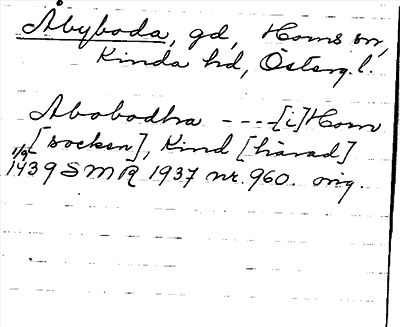 Åbyboda, gd, Horns sn,
Kinda hd, Österg.l.
Abobodha ----[i] Horn
[socken], Kind [härad]
1/9 1439 SMR 1937 nr. 960. orig.